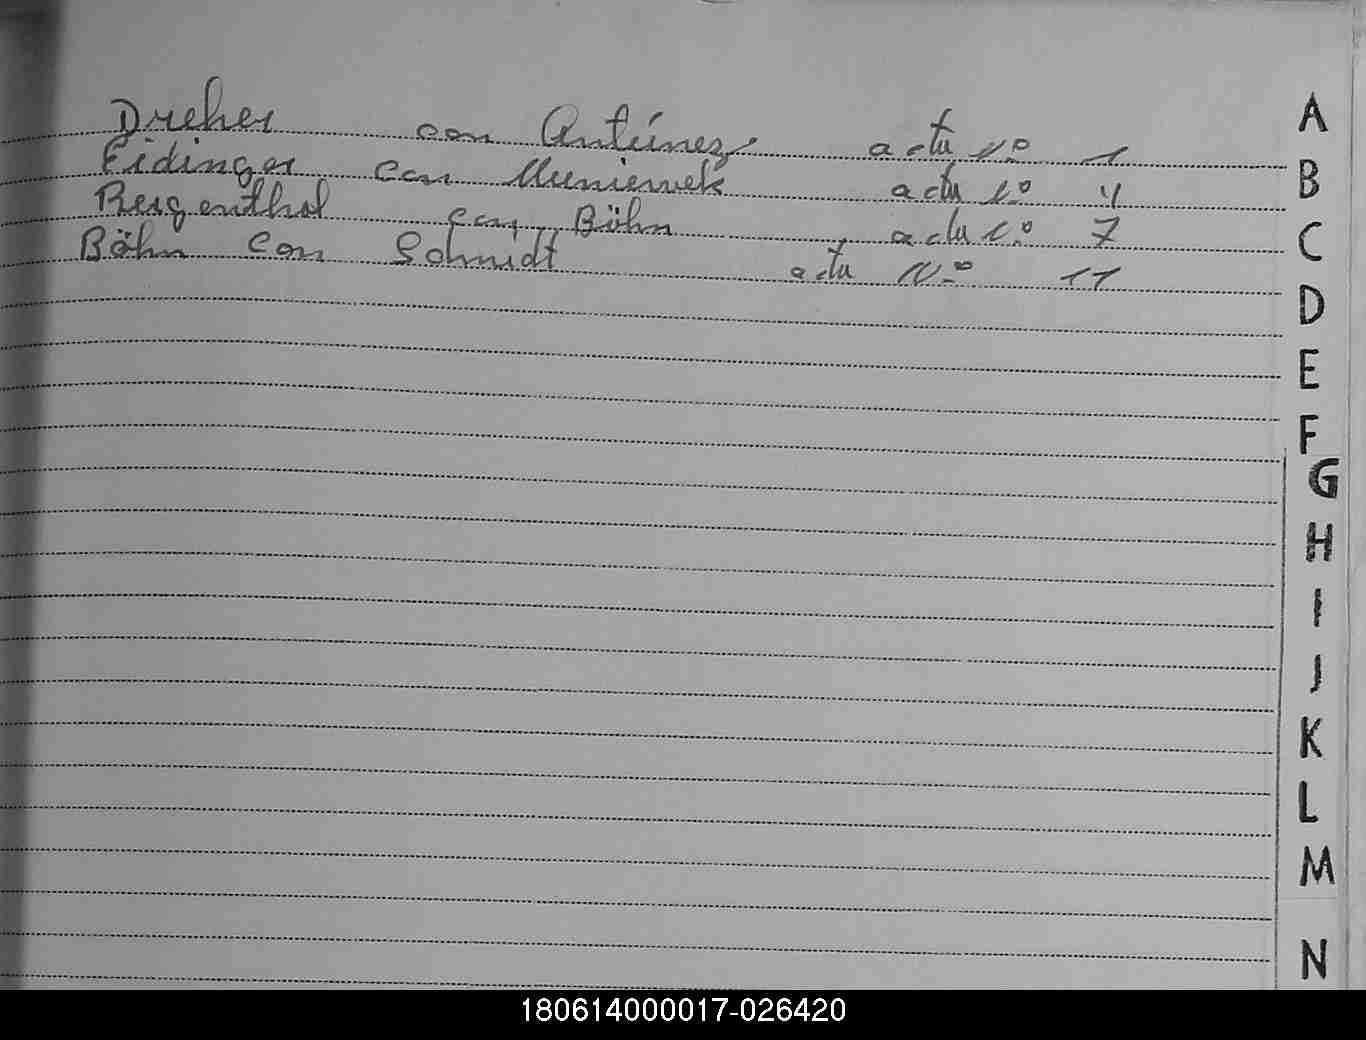 Dreher con Antúnez acta Nº 1
Eidinger con Muniewek acta Nº 4
Reigenthal con Böhn acta Nº 7
Böhn con Schmidt acta Nº 11
A
B
C
D
E
F
G
H
I
J
K
L
M
N
180614000017-026420